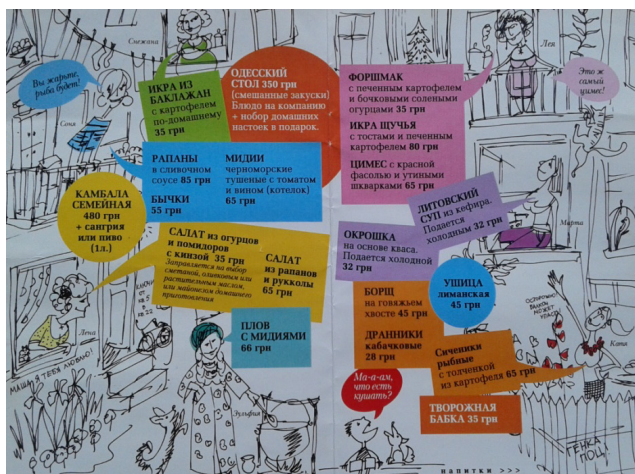 Снежана
Вы жарьте,
рыба будет!
Соня
ИКРА ИЗ
БАКЛАЖАН
с картофелем
по-домашнему
35 грн
ОДЕССКИЙ
СТОЛ 350 грн
(смешанные закуски)
Блюдо на компанию
+ нобор домашних
настоек в подарок.
РАПАНЫ
в сливочном
соусе 85 грн
БЫЧКИ
55 грн
МИДИИ
черноморские
тушеные с томатом
и вином (котелок)
65 грн
КАМБАЛА
СЕМЕЙНАЯ
480 грн
+ сангрия
или пиво
(1л.)
САЛАТ из огурцов
и помидоров
с кинзой 35 грн
Заправляется на выбор
сметаной, оливковым или
растительным маслом,
или майонезом домашнего
приготовления
САЛАТ
из рапанов
и рукколы
65 грн
Лена
МАША Я ТЕБЯ ЛЮБЛЮ!
ПЛОВ
С МИДИЯМИ
66 грн
Зульфия
Лея
Это ж
самый
цимес!
ФОРШМАК
с печенным картофелем
и бочковыми солеными
огурцами 35 грн
ИКРА ЩУЧЬЯ
с тостами и печенным
картофелем 80 грн
ЦИМЕС с красной
фасолью и утиными
шкварками 65 грн
ЛИТОВСКИЙ
СУП из кефира.
Подается
холодным 32 грн
Марта
ОКРОШКА
на основе кваса.
Подается холодной
32 грн
УШИЦА
лиманская
45 грн
БОРЩ
на говяжьем
хвосте 45 грн
ДРАННИКИ
кабачковые
28 грн
Сиченики
рыбные
с толченкой
из картофеля 65 грн
ОСТОРОЖНО
МОЖЕТ
Катя
Ма-а-ам,
что есть
кушать?
ТВОРОЖНАЯ
БАБКА 35 грн
ГЕНКА
ПОЦ!
напитки >>>